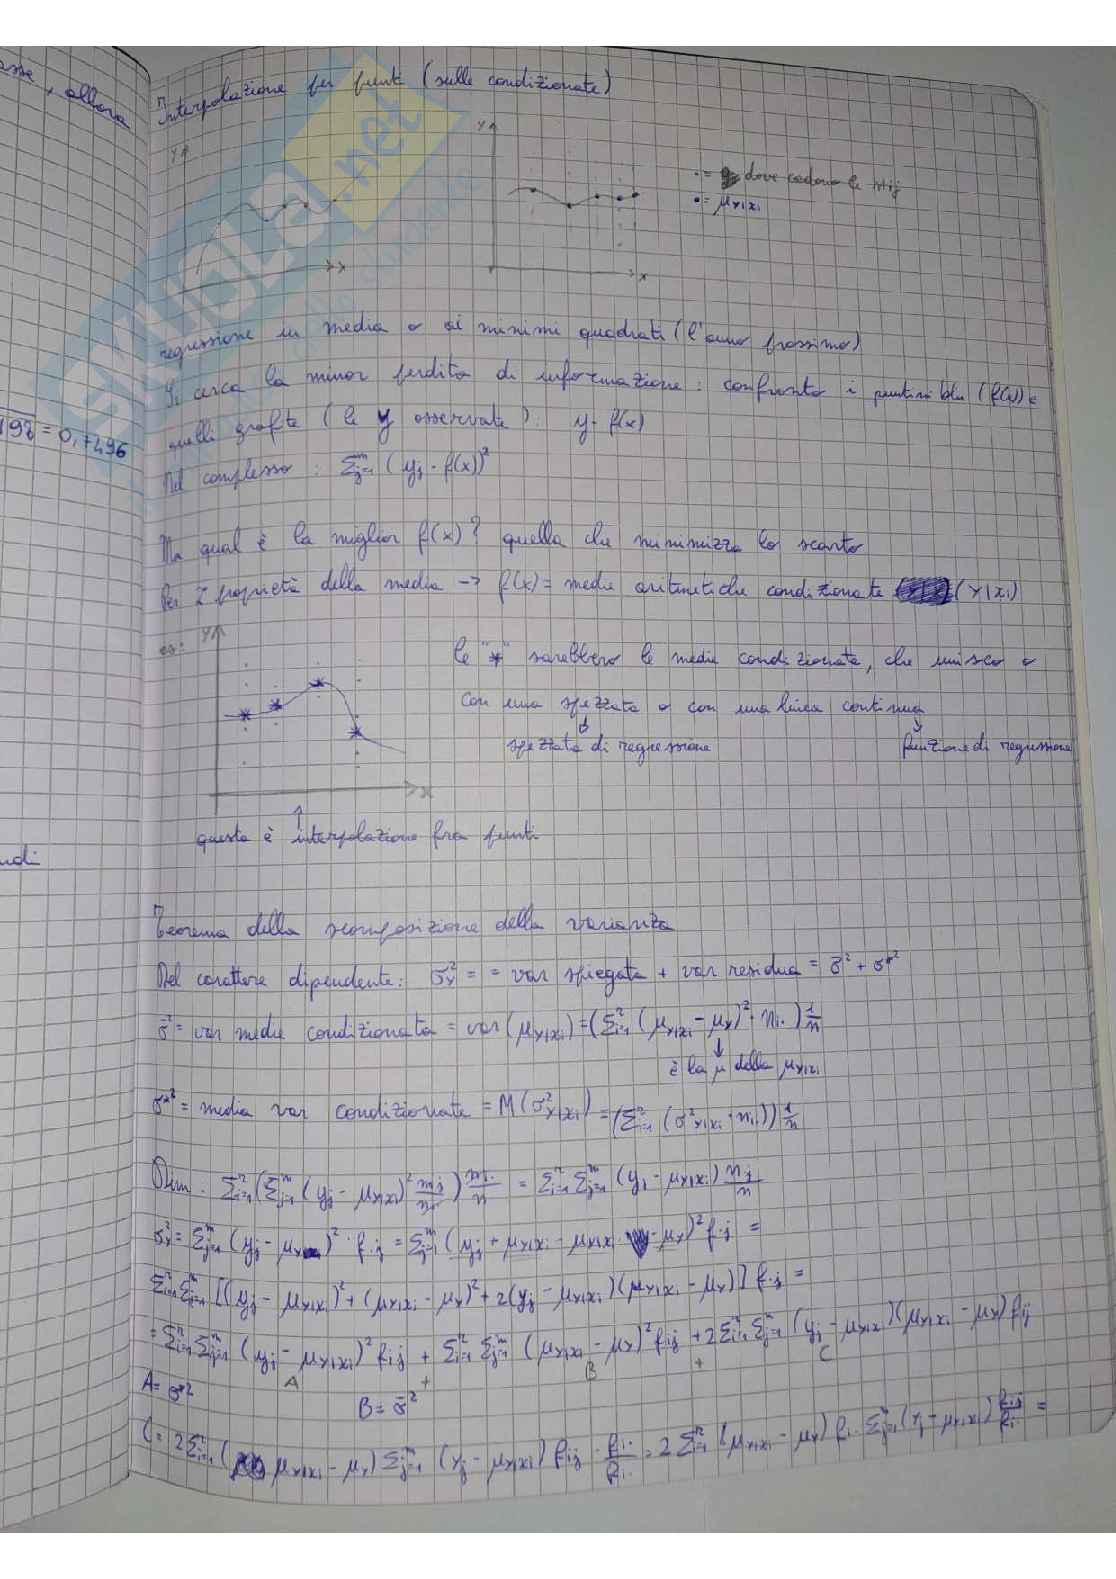 asse, allora
Interpolazione per punti (sulle condizionate)
y
x
y
x
· = dove cadono le nij
• = μY|xi
regressione in media o ai minimi quadrati (l'anno prossimo)
Si cerca la minor perdita di informazione: confronto i puntini blu (f(x)) e
quelli grafite (le y osservate): y - f(x)
Nel complesso: Σ^m_{j=1} (yj - f(x))²
= 0,7496
Ma qual è la miglior f(x)? quella che minimizza lo scarto
Per 2 proprietà della media → f(x) = medie aritmetiche condizionate (Y|xi)
es:
y
x
le "*" sarebbero le medie condizionate, che unisco o
con una spezzata o con una linea continua
spezzata di regressione
funzione di regressione
questa è interpolazione fra punti
Teorema della scomposizione della varianza
Del carattere dipendente: σ²_Y = = var spiegata + var residua = σ̄² + σ*²
σ̄² = var medie condizionata = var (μY|xi) = (Σ^n_{i=1} (μY|xi - μY)² · ni.) 1/n
è la μ della μY|xi
σ*² = media var condizionate = M(σ²Y|xi) = (Σ^n_{i=1} (σ²Y|xi · ni.)) 1/n
Dim. Σ^n_{i=1} (Σ^m_{j=1} (yj - μY|xi)² nij/ni.) ni./n = Σ^n_{i=1} Σ^m_{j=1} (yj - μY|xi) nij/n
σ²_Y = Σ^m_{j=1} (yj - μY)² · f.j = Σ^m_{j=1} (yj + μY|xi - μY|xi - μY)² f.j =
Σ^n_{i=1} Σ^m_{j=1} [(yj - μY|xi)² + (μY|xi - μY)² + 2(yj - μY|xi)(μY|xi - μY)] f.j =
= Σ^n_{i=1} Σ^m_{j=1} (yj - μY|xi)² fij + Σ^n_{i=1} Σ^m_{j=1} (μY|xi - μY)² fij + 2 Σ^n_{i=1} Σ^m_{j=1} (yj - μY|xi)(μY|xi - μY) fij
A + B + C
A = σ*² B = σ̄²
C = 2 Σ^n_{i=1} (μY|xi - μY) Σ^m_{j=1} (Yj - μY|xi) fij · fi./fi. = 2 Σ^n_{i=1} (μY|xi - μY) fi. Σ^m_{j=1} (Yj - μY|xi) fij/fi. =
SKUOLA.net